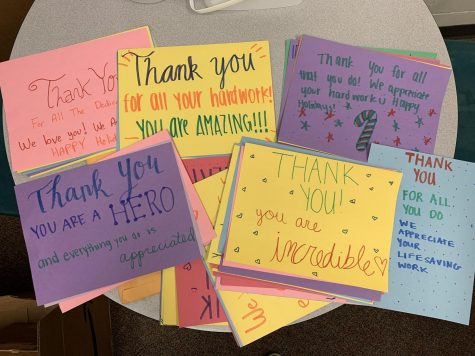 Thank You
For All The
We love you! We A
HAPPY Holi
Thank you
for all your hardwork!
YOU are AMAZING!!!
Thank You for all
that you do! We appreciate
your hardwork! Happy
Holidays!
Thank You
YOU ARE A HERO
and everything you do is
appreciated
THANK
YOU!
you are
incredible
THANK
YOU
FOR ALL
YOU DO
WE
APPRECIATE
YOUR
LIFESAVING
WORK
We